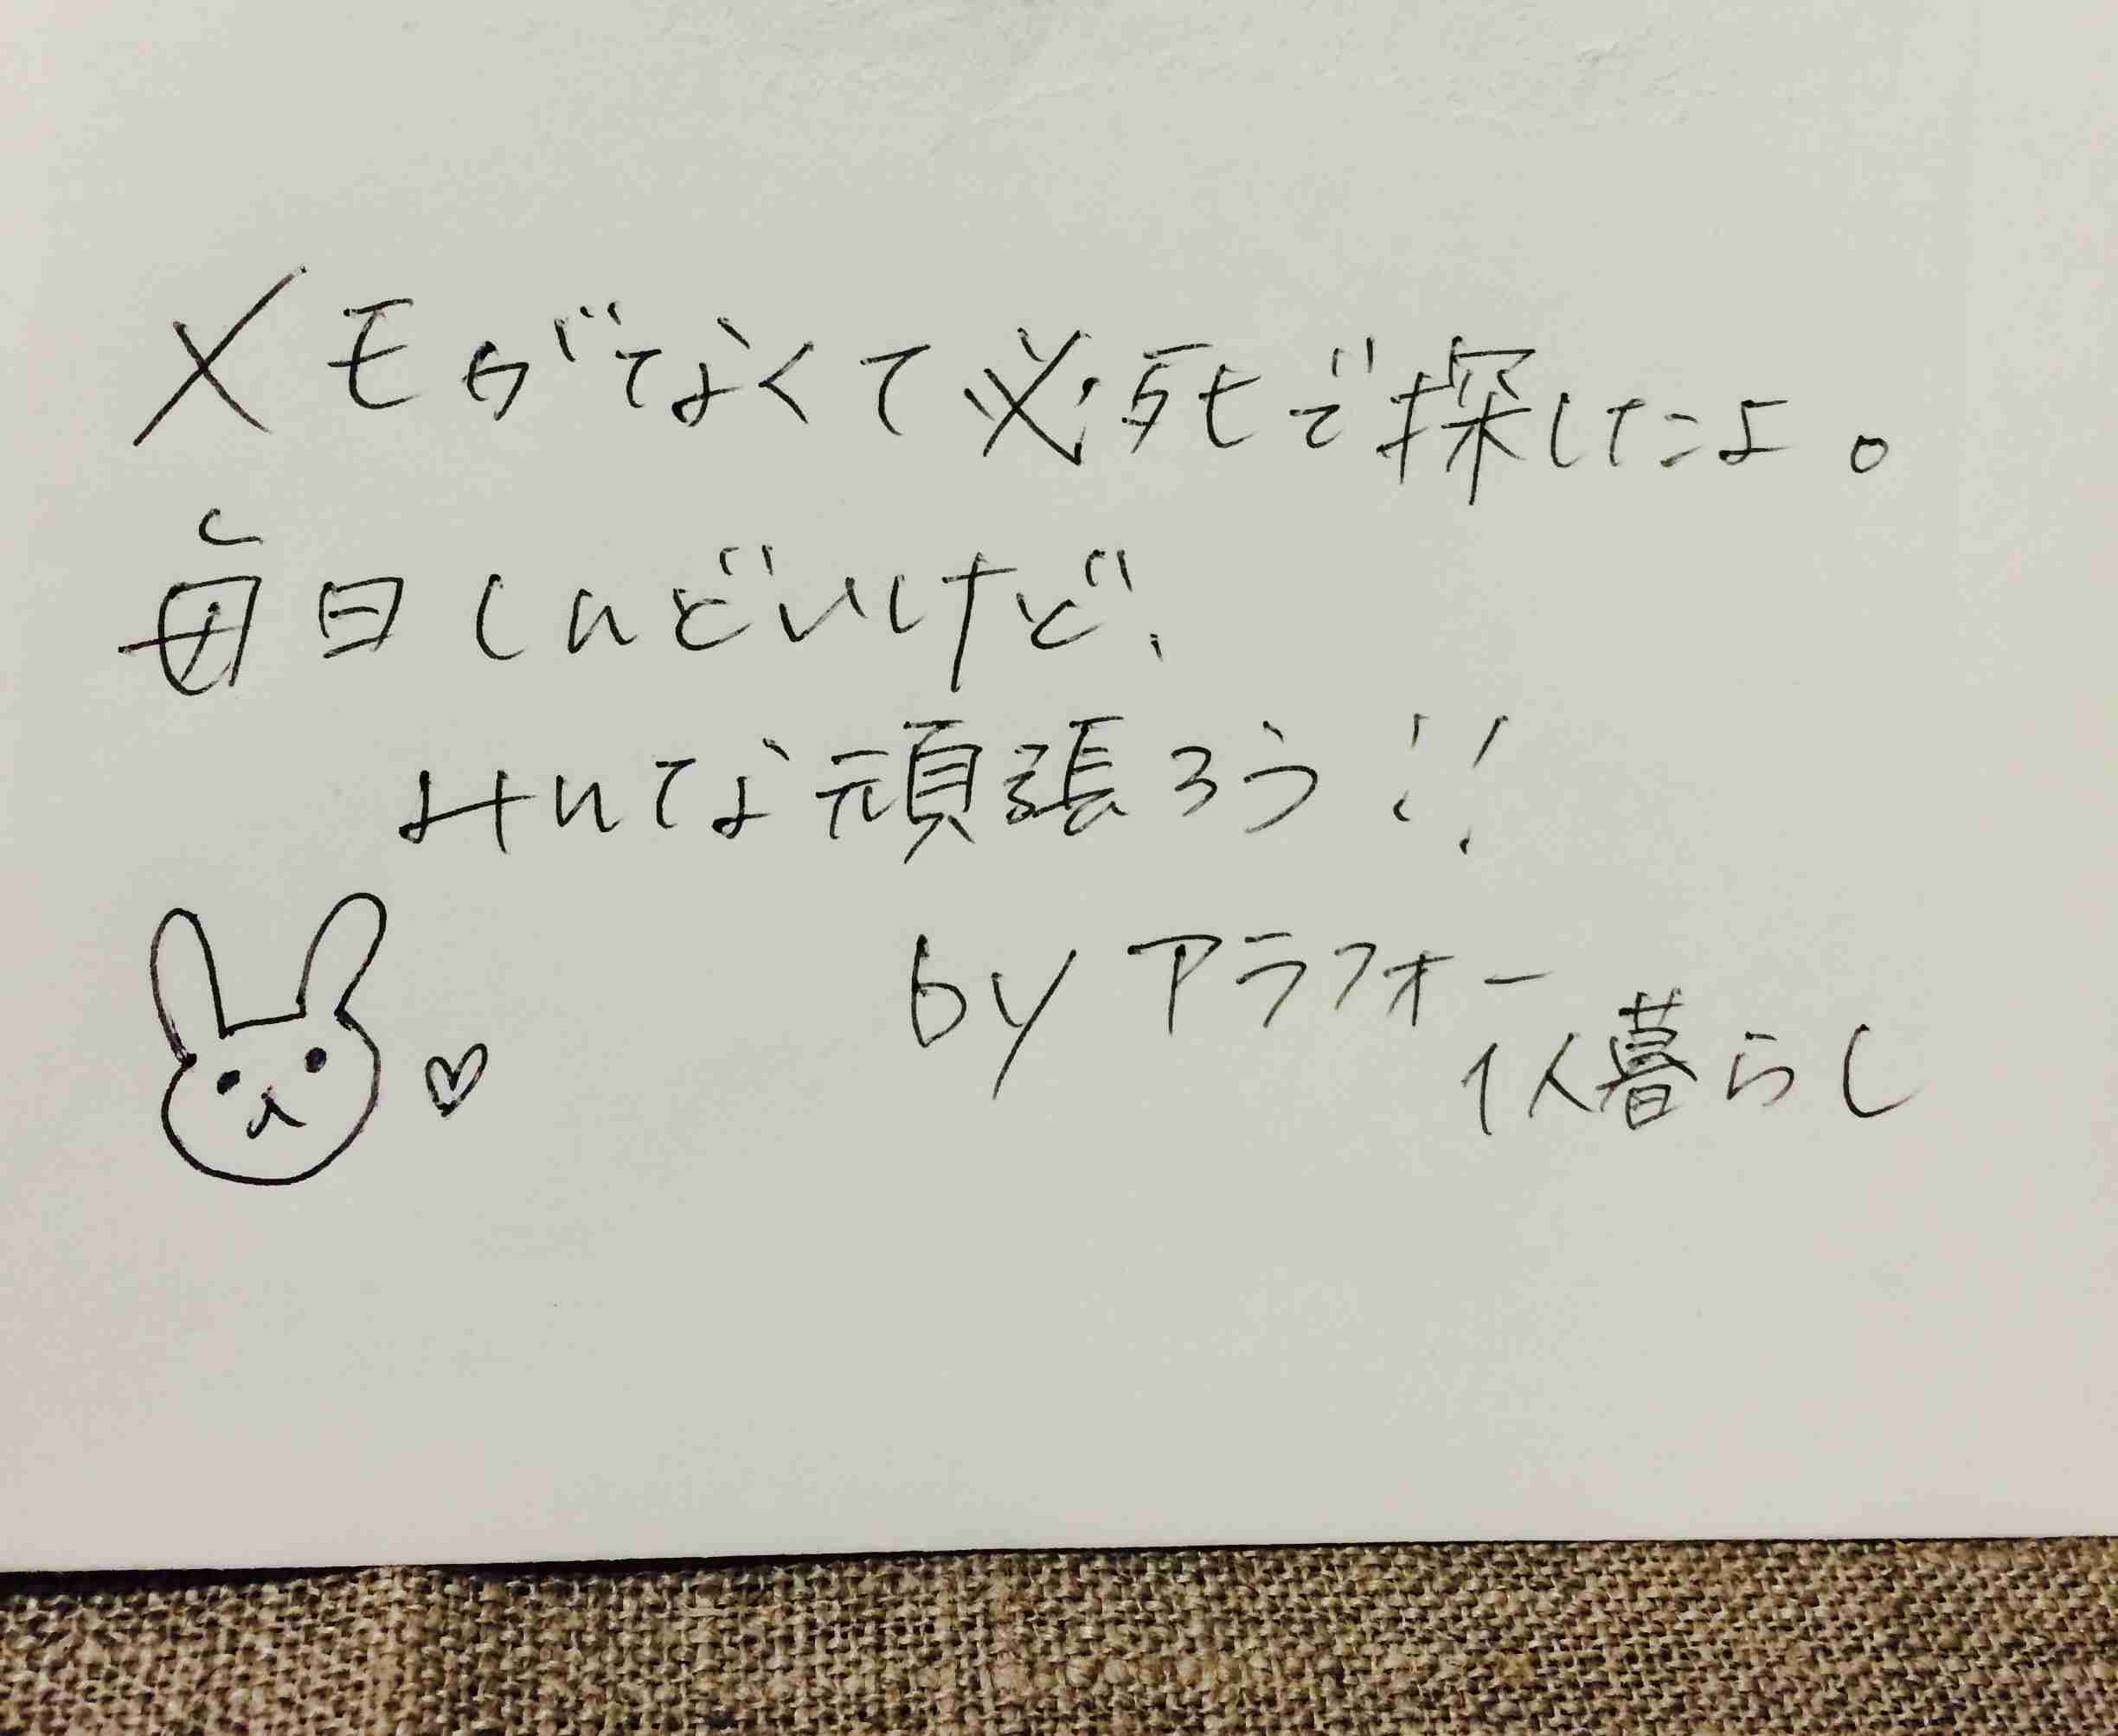 メモがなくて必死で探したよ。
毎日しんどいけど、
みんな頑張ろう!!
by アラフォー
1人暮らし